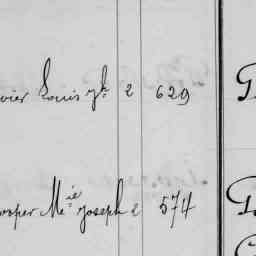 vier Louis gh 2 629
rosper Mie Joseph 2 574